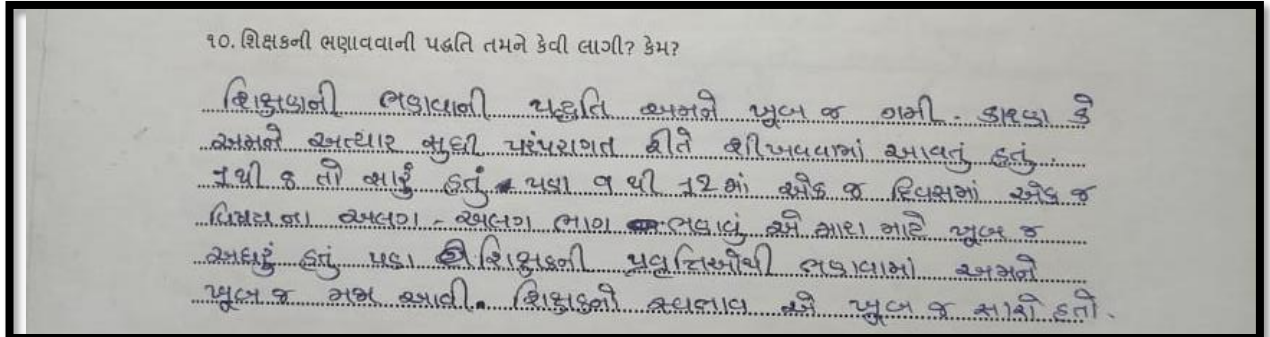 ૧૦. શિક્ષકની ભણાવવાની પદ્ધતિ તમને કેવી લાગી? કેમ?
શિક્ષકની ભણાવાની પદ્ધતિ અમને ખૂબ જ ગમી. કારણ કે
અમને અત્યાર સુધી પરંપરાગત રીતે શીખવવામાં આવતું હતું.
1 થી 8 તો સારું હતું પણ 9 થી 12 માં એક જ દિવસમાં એક જ
વિષયના અલગ - અલગ ભાગ ભણવું એ મારા માટે ખૂબ જ
અઘરું હતું પણ શિક્ષકની પ્રવૃત્તિઓથી ભણાવામાં અમને
ખૂબ જ મજા આવી. શિક્ષકનો સ્વભાવ એ ખૂબ જ સારો હતો.